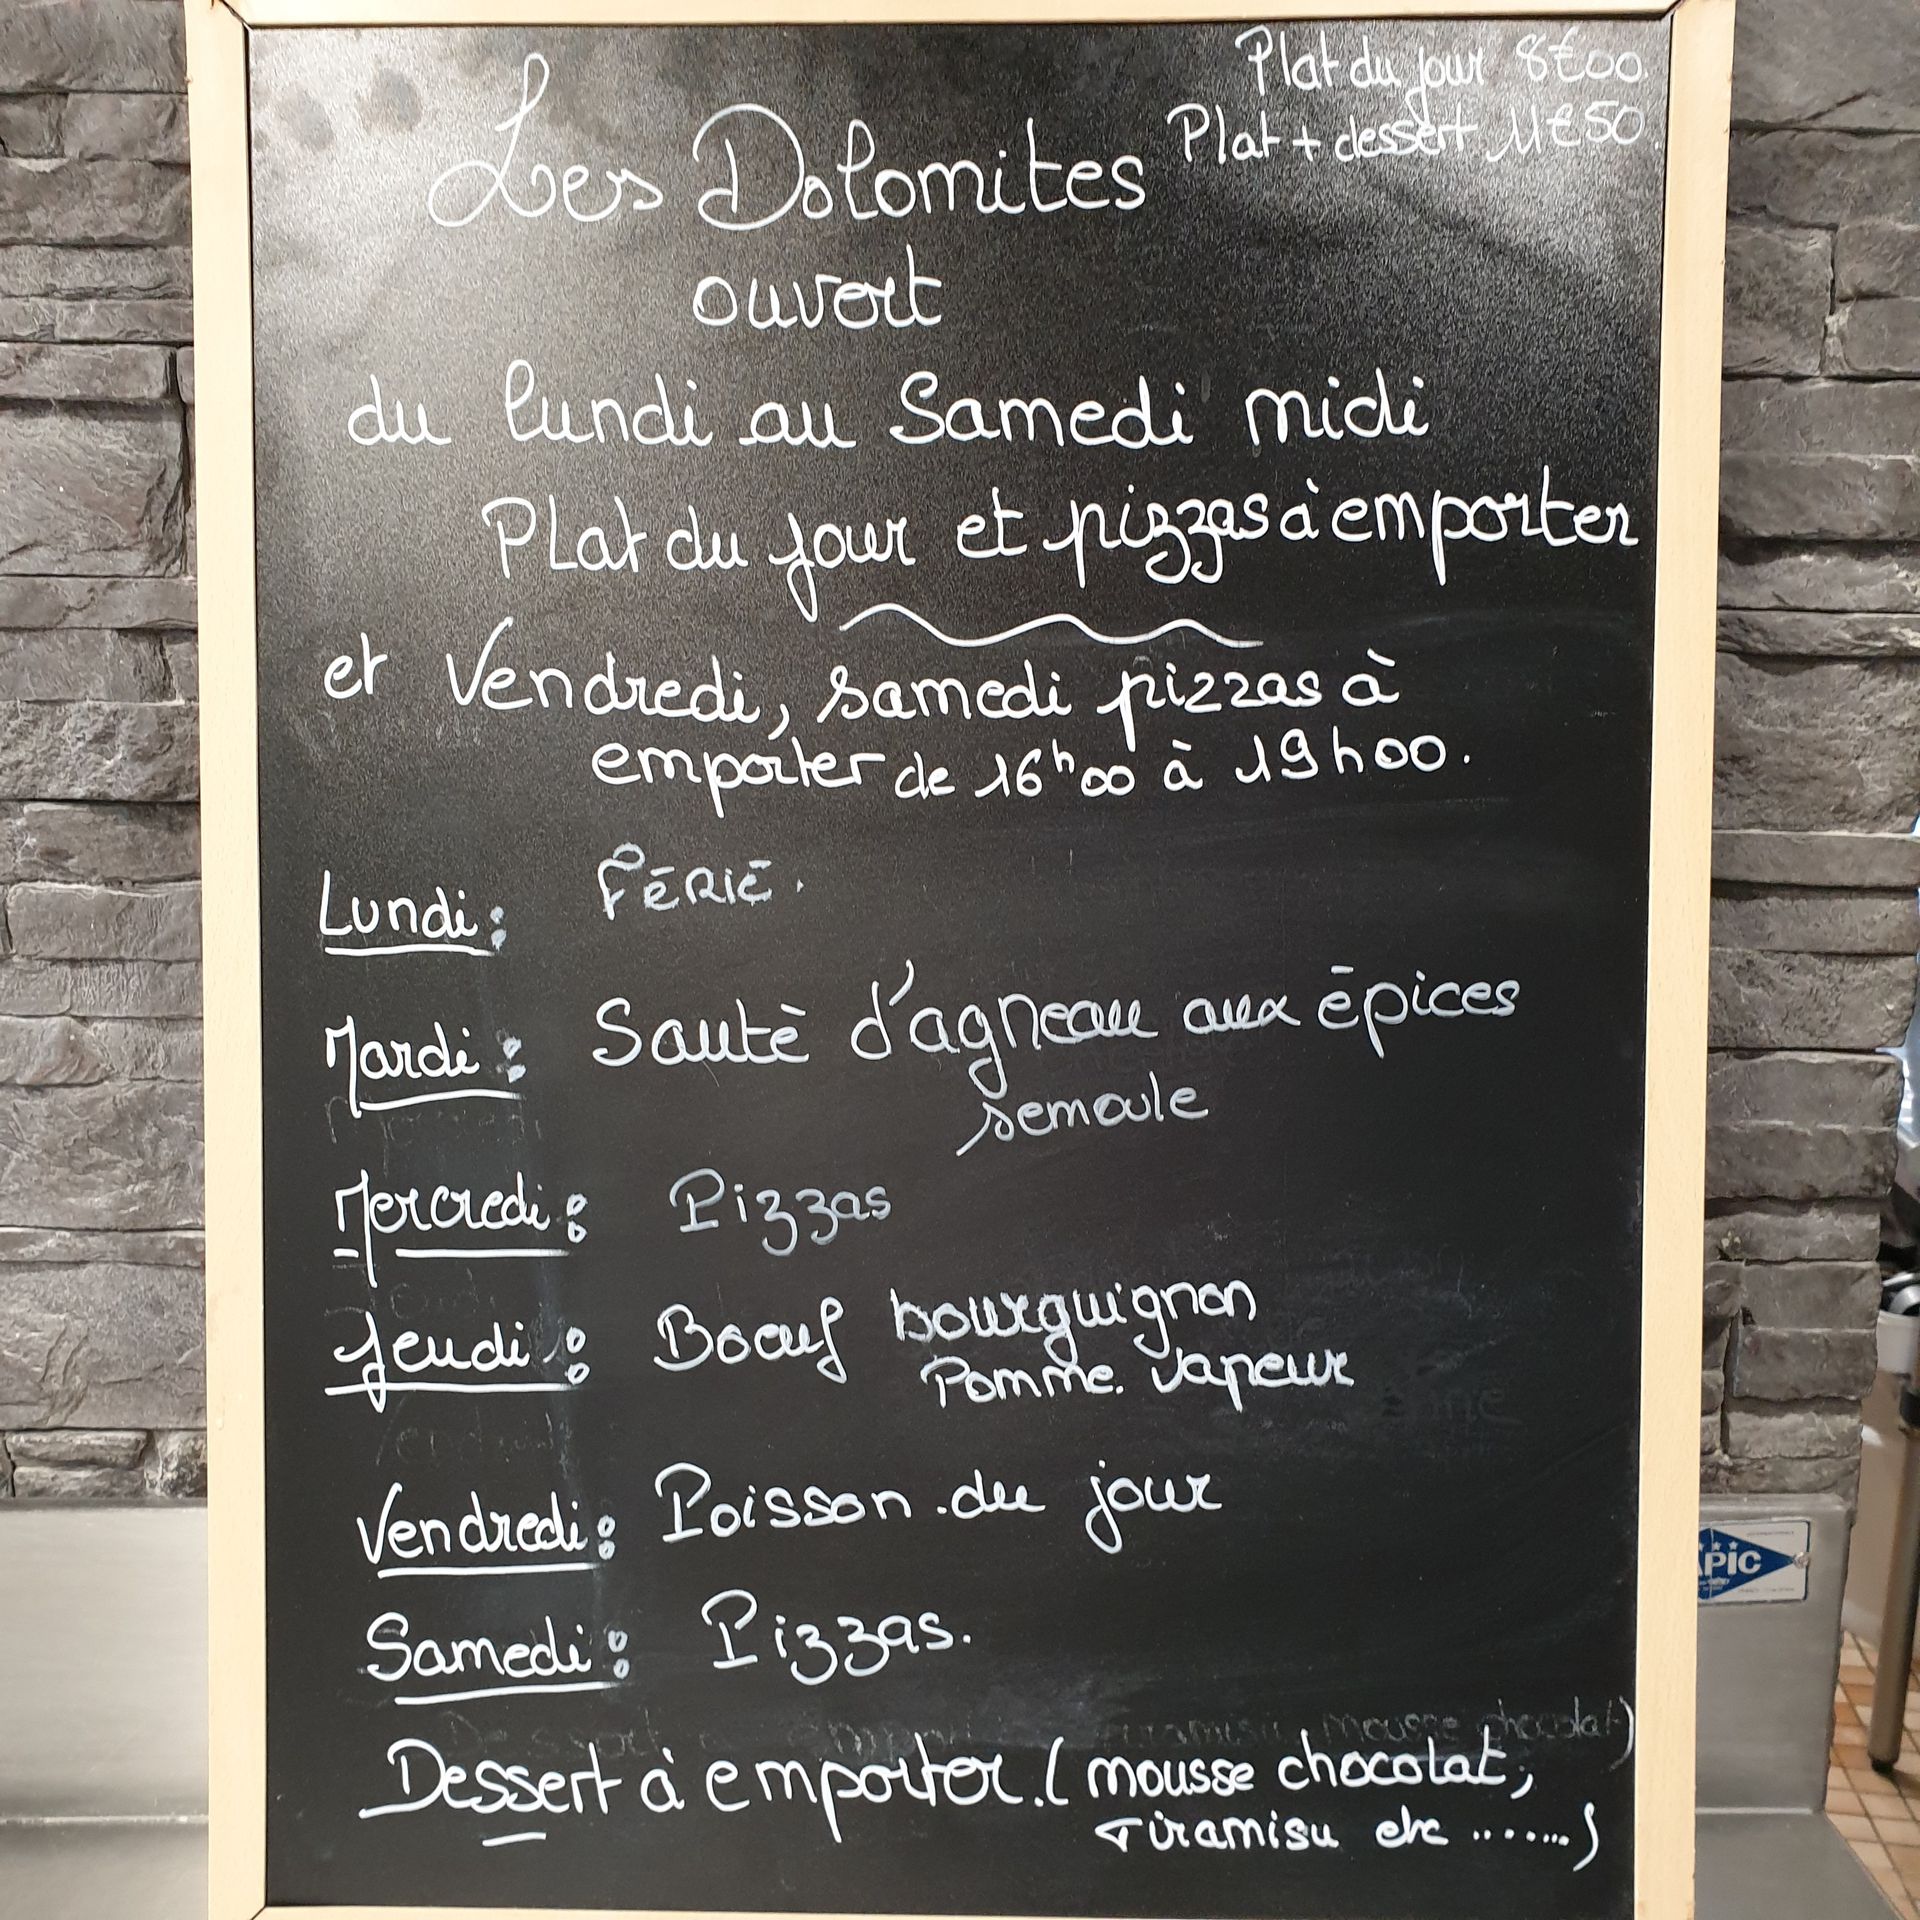 Plat du jour 8€00
Plat + dessert 11€50
Les Dolomites
ouvert
du lundi au Samedi midi
PLat du jour et pizzas à emporter
et Vendredi, samedi pizzas à
emporter de 16h00 à 19h00.
Lundi: FÉRIÉ.
Mardi: Sautè d'agneau aux épices
semoule
Mercredi: Pizzas
Jeudi: Boeuf bourguignon
Pomme. vapeur
Vendredi: Poisson du jour
Samedi: Pizzas.
mousse chocolat)
Dessert à emporter. (mousse chocolat,
Tiramisu etc .......)
APIC